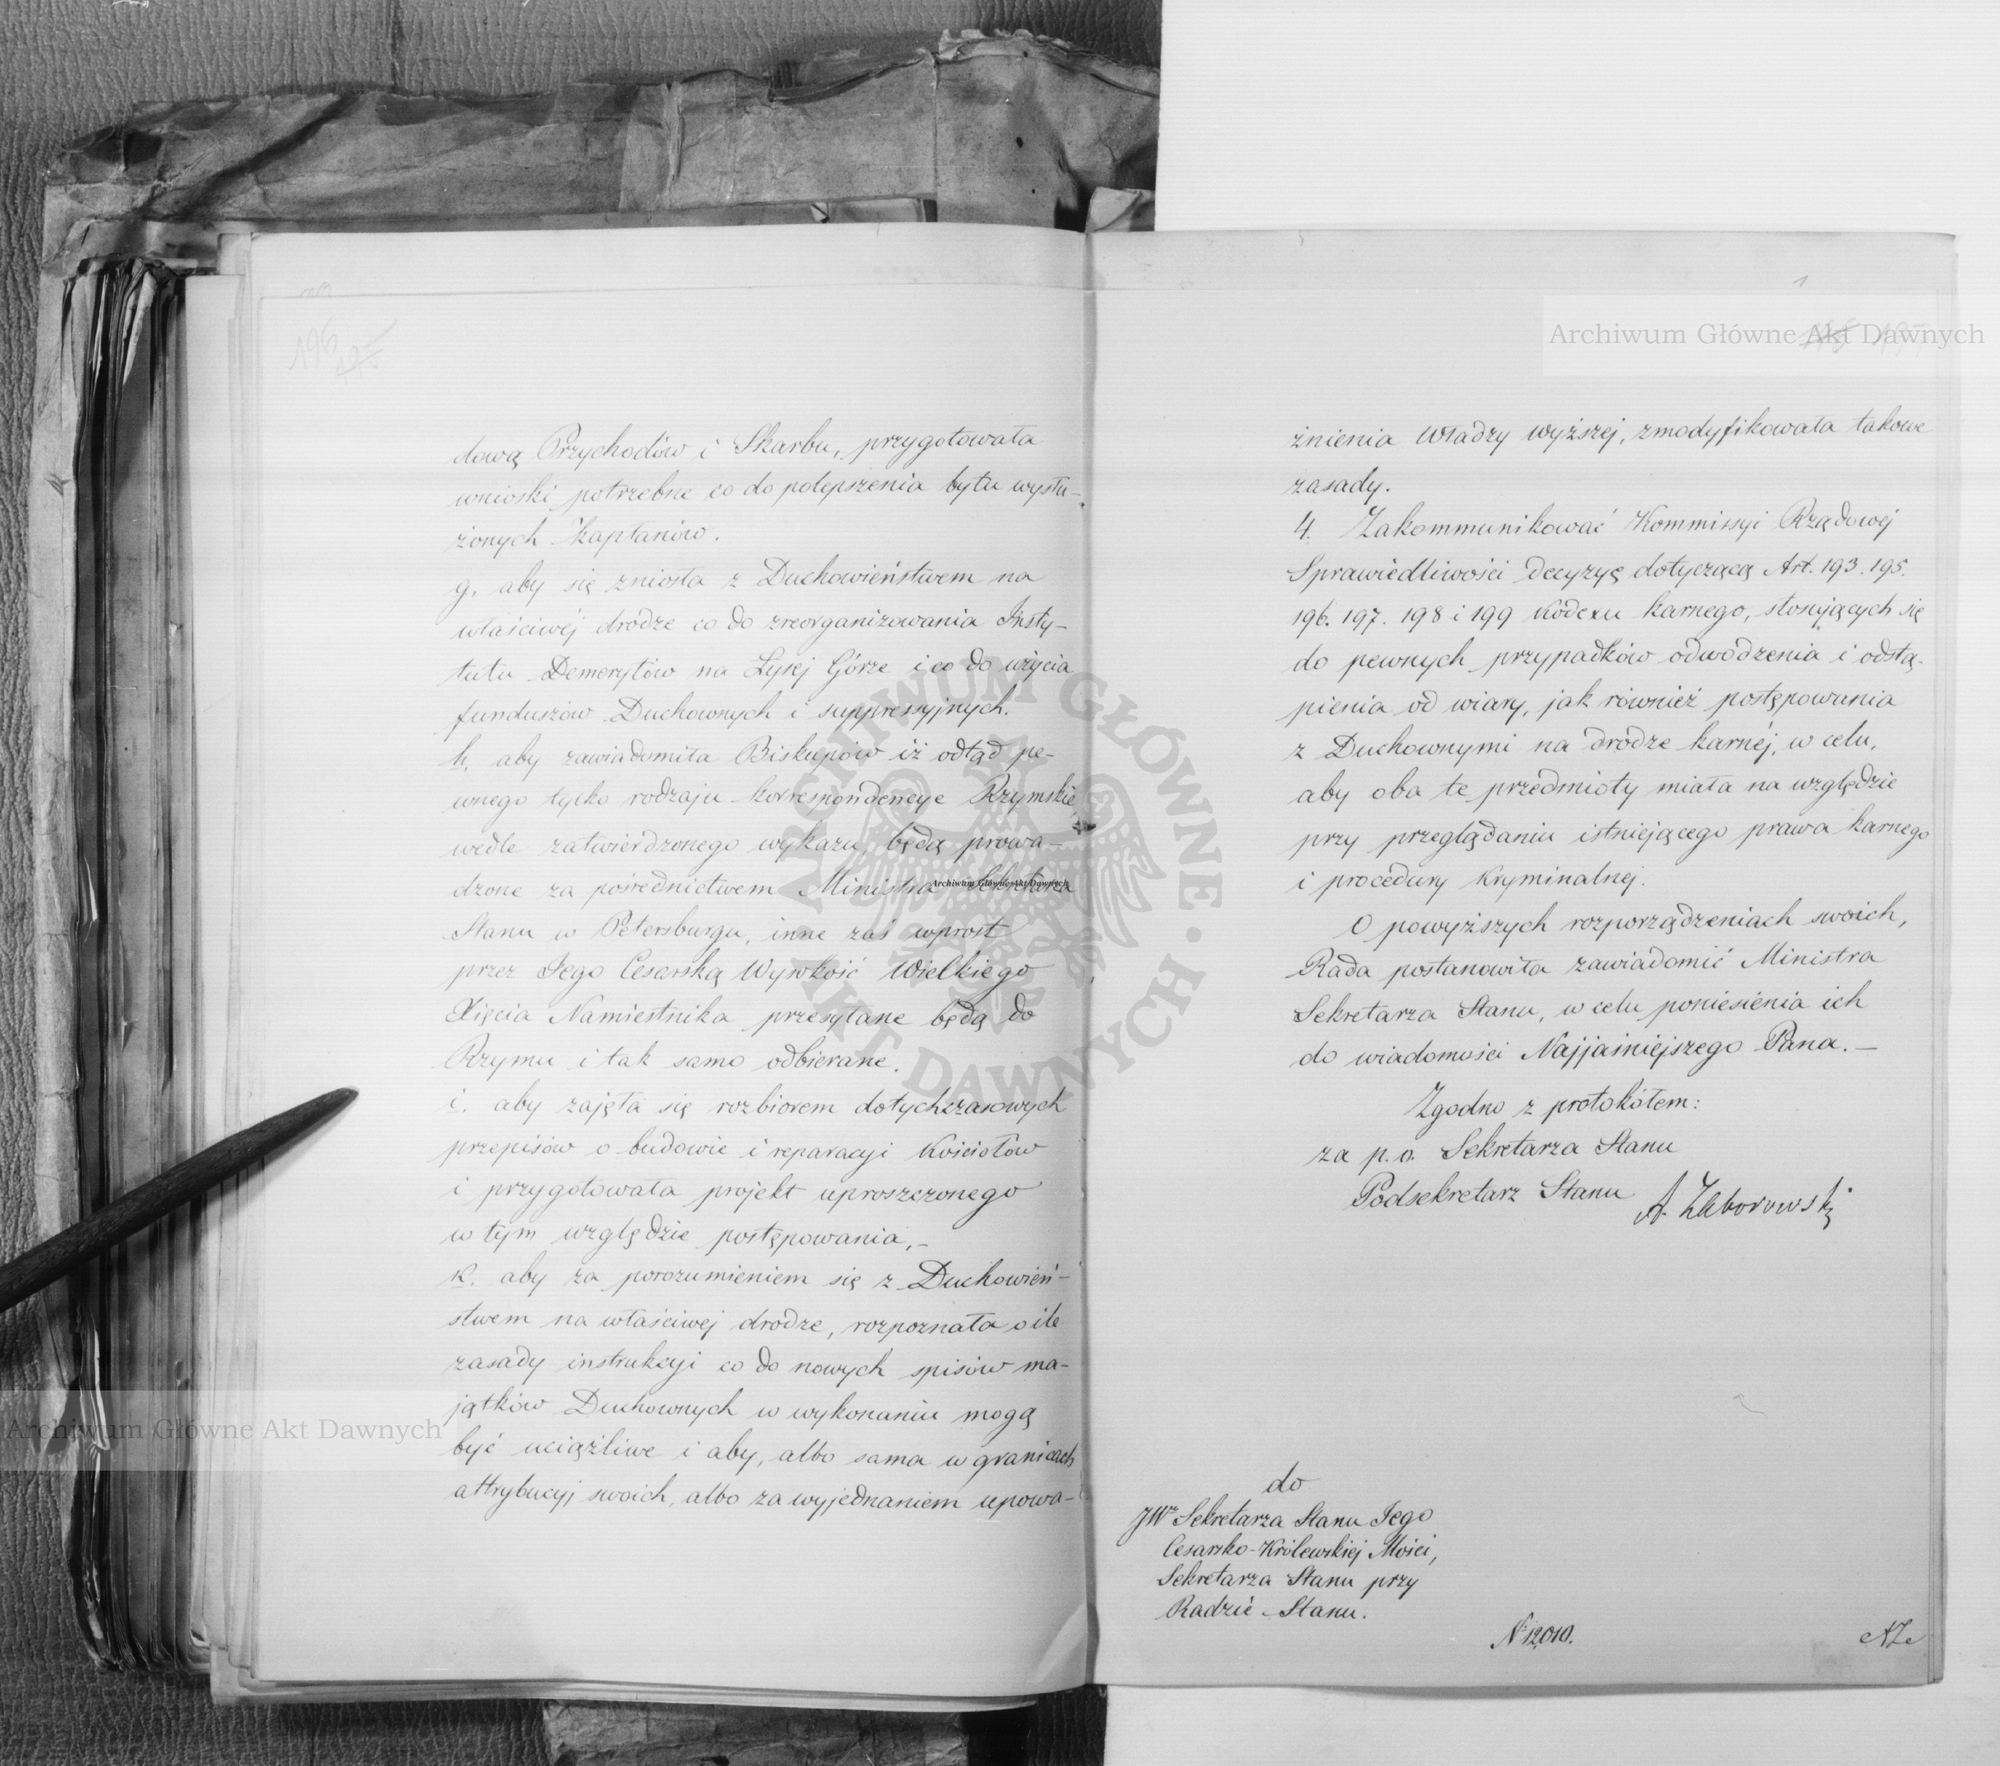 196
dową Przychodów i Skarbu, przygotowała
wnioski potrzebne co do polepszenia bytu wysłu-
żonych Kapłanów.
g. aby się zniosła z Duchowieństwem na
właściwéj drodze co do zreorganizowania Insty-
tutu Demerytów na Łysej Górze i co do użycia
funduszów Duchownych i suppressyjnych.
h. aby zawiadomiła Biskupów iż odtąd pe-
wnego tylko rodzaju korrespondencye Rzymskie,
wedle zatwierdzonego wykazu, będą prowa-
dzone za pośrednictwem Ministra Sekretarza
Stanu w Petersburgu, inne zaś wprost
przez Jego Cesarską Wysokość Wielkiego
Xięcia Namiestnika przesyłane będą do
Rzymu i tak samo odbierane.
i. aby zajęła się rozbiorem dotychczasowych
przepisów o budowie i reparacyi Kościołów
i przygotowała projekt uproszczonego
w tym względzie postępowania,-
k. aby za porozumieniem się z Duchowień-
stwem na właściwej drodze, rozpoznała o ile
zasady instrukcyi co do nowych spisów ma-
jątków Duchownych w wykonaniu mogą
być uciążliwe i aby, albo sama w granicach
attrybucyj swoich, albo za wyjednaniem upowa-
żnienia Władzy wyższej, zmodyfikowała takowe
zasady.
4. Zakommunikować Kommissyi Rządowej
Sprawiedliwości decyzyę dotyczącą Art. 193. 195.
196. 197. 198 i 199 Kodexu karnego, stosujących się
do pewnych przypadków odwodzenia i odstą-
pienia od wiary, jak również postępowania
z Duchownymi na drodze karnéj, w celu,
aby oba te przedmioty miała na względzie
przy przeglądaniu istniejącego prawa karnego
i procedury kryminalnej.
O powyższych rozporządzeniach swoich,
Rada postanowiła zawiadomić Ministra
Sekretarza Stanu, w celu poniesienia ich
do wiadomości Najjaśniejszego Pana. —
Zgodno z protokółem:
za p. o. Sekretarza Stanu
Podsekretarz Stanu A. Zaborowski
do
JWº Sekretarza Stanu Jego
Cesarsko-Królewskiej Mości,
Sekretarza Stanu przy
Radzie Stanu.
N 12,010.
Archiwum Główne Akt Dawnych
Archiwum Główne Akt Dawnych
Archiwum Główne Akt Dawnych
ARCHIWUM GŁÓWNE AKT DAWNYCH